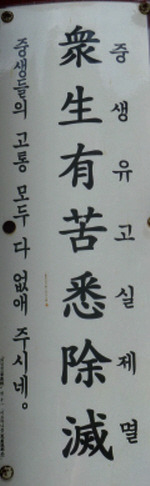 중생유고실제멸
衆生有苦悉除滅
중생들의 고통 모두 다 없애 주시네。